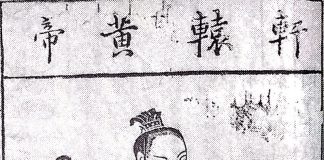 軒轅黃帝